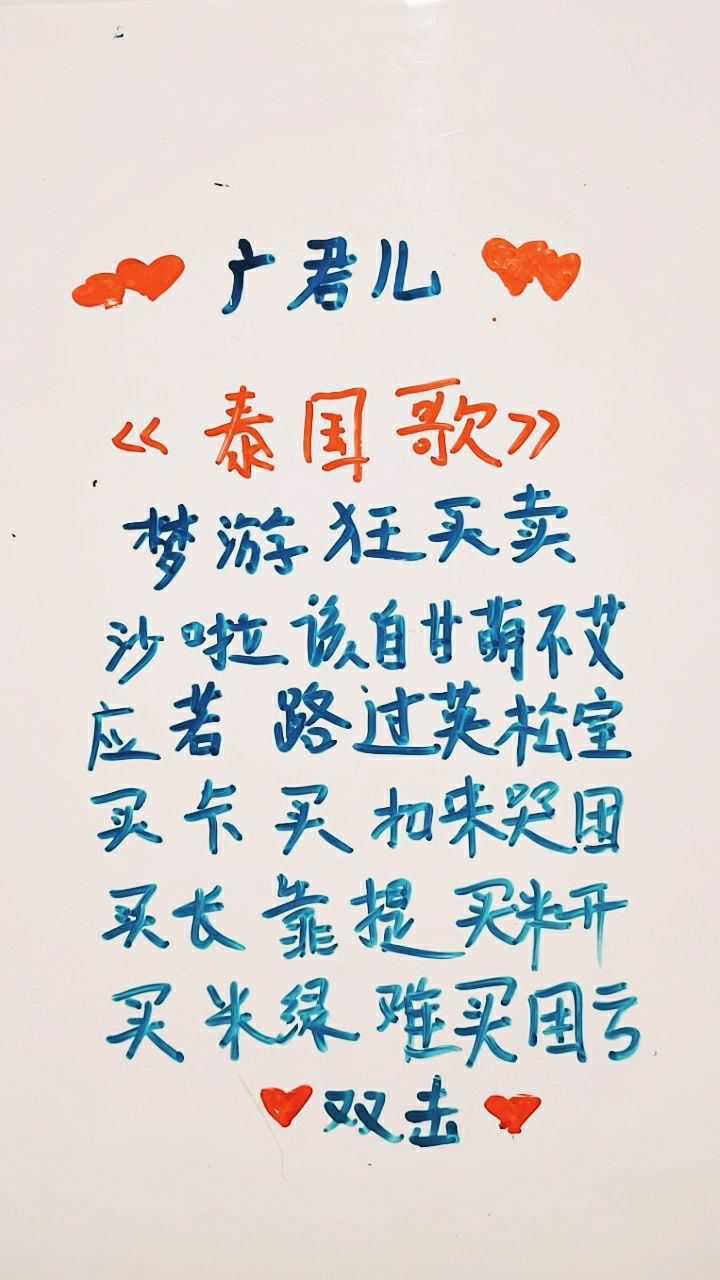 广君儿
《泰国歌》
梦游狂买卖
沙啦该自甘萌不艾
应若路过英松室
买卡买扣来哭团
买长靠提买米开
买米绿难买团亏
双击